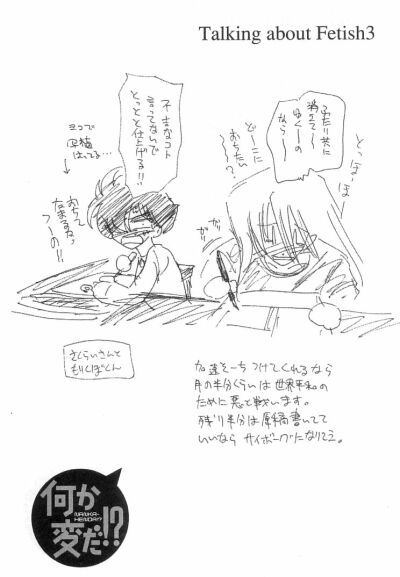 Talking about Fetish3
ふたり共に
消えて〜
ゆく〜の
なら〜
どーこに
おちたい
〜?
とっほーほー
ガ
ガ
不吉なコト
言ってないで
とっとと仕上げろ!!
ヨコで
原稿
はってる…
おちて
たまるかっ
つーの!!
さくらいさんと
もりくぼくん
加速そーちつけてくれるなら
月の半分くらいは世界平和の
ために悪と戦います。
残り半分は原稿書いてて
いいならサイボーグになりてえ。
何か
NANKA-
HENDA!?
変だ!?